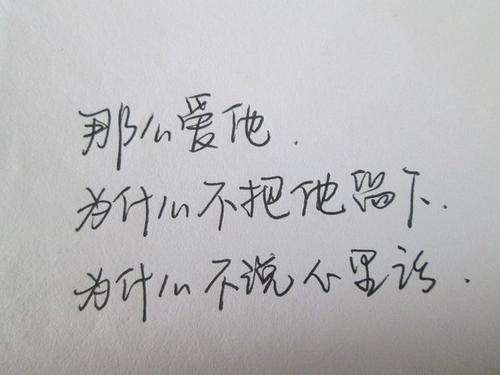 那么爱他.
为什么不把他留下.
为什么不说心里话.